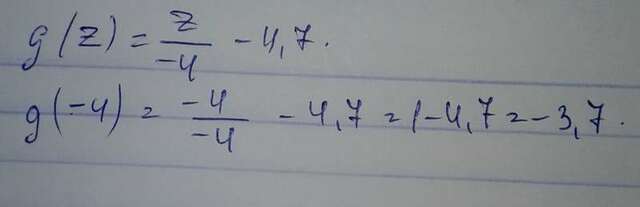 g(z) = z/-4 - 4,7.
g(-4) = -4/-4 - 4,7 = 1-4,7 = -3,7.